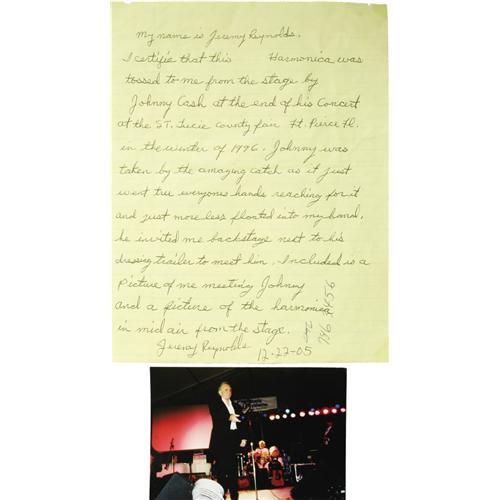 My name is Jeremy Reynolds.
I certifie that this Harmonica was
tossed to me from the stage by
Johnny Cash at the end of his Concert
at the ST. Lucie County fair Ft. Pierce Fl.
in the winter of 1996. Johnny was
taken by the amazing catch as it just
went tru everyones hands reaching for it
and just more less floated into my hand.
he invited me backstage next to his
dressing trailer to meet him. Included is a
Picture of me meeting Johnny
and a picture of the harmonica
in mid air from the stage.
Jeremy Reynolds
12-22-05